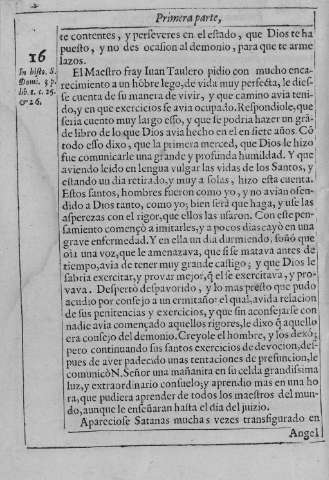 2
Primera parte,
te contentes, y perseveres en el estado, que Dios te ha
puesto, y no des ocasion al demonio, para que te arme
lazos.
16
In histo. S.
Domi. 3 p.
lib. 1. c. 25.
& 26.
El Maestro fray Iuan Taulero pidio con mucho enca-
recimiento a un hõbre lego, de vida muy perfecta, le dies-
se cuenta de su manera de vivir, y que camino avia teni-
do, y en que exercicios se avia ocupado. Respondiole, que
seria cuento muy largo esso, y que se podria hazer un grã-
de libro de lo que Dios avia hecho en el en siete años. Cõ
todo esso dixo, que la primera merced, que Dios le hizo
fue comunicarle una grande y profunda humildad. Y que
aviendo leido en lengua vulgar las vidas de los Santos, y
estando un dia retirado, y muy a solas, hizo esta cuenta.
Estos santos, hombres fueron como yo, y no avian ofen-
dido a Dios tanto, como yo; bien será que haga, y use las
asperezas con el rigor, que ellos las usaron. Con este pen-
samiento començò a imitarles, y a pocos dias cayò en una
grave enfermedad. Y en ella un dia durmiendo, soñò que
oia una voz, que le amenazava, que si se matava antes de
tiempo, avia de tener muy grande castigo; y que Dios le
sabria exercitar, y provar mejor, q̃ el se exercitava, y pro-
vava. Despertò despavorido, y lo mas presto que pudo
acudio por consejo a un ermitaño: el qual, avida relacion
de sus penitencias y exercicios, y que sin aconsejarse con
nadie avia començado aquellos rigores, le dixo q̃ aquello
era consejo del demonio. Creyole el hombre, y los dexò;
pero continuando sus santos exercicios de devocion, des-
pues de aver padecido unas tentaciones de presuncion, le
comunicò N. Señor una mañanita en su celda grandissima
luz, y extraordinario consuelo; y aprendio mas en una ho-
ra, que pudiera aprender de todos los maestros del mun-
do, aunque le enseñaran hasta el dia del juizio.
Apareciose Satanas muchas vezes transfigurado en
Angel